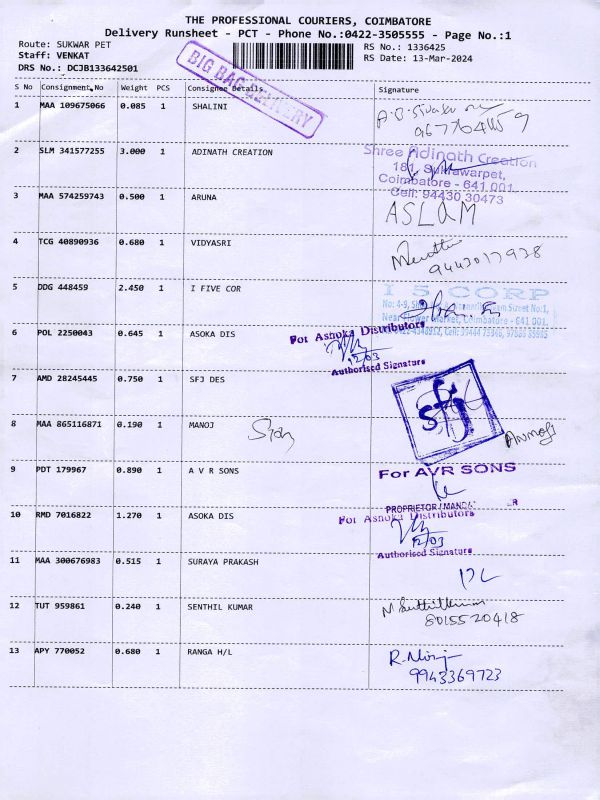 THE PROFESSIONAL COURIERS, COIMBATORE
Delivery Runsheet - PCT - Phone No.:0422-3505555 - Page No.:1
Route: SUKWAR PET
RS No.: 1336425
Staff: VENKAT
RS Date: 13-Mar-2024
DRS No.: DCJB133642501
BIG BAG DELIVERY
S No Consignment No Weight PCS Consignee Details Signature
1 MAA 109675066 0.085 1 SHALINI
2 SLM 341577255 3.000 1 ADINATH CREATION
Shree Adinath Creation
181, Sukrawarpet,
Coimbatore - 641 001.
Cell: 94430 30473
3 MAA 574259743 0.500 1 ARUNA ASLAM
4 TCG 40890936 0.680 1 VIDYASRI
9443017938
5 DDG 448459 2.450 1 I FIVE COR
I 5 CORP
Coimbatore - 641 001.
6 POL 2250043 0.645 1 ASOKA DIS
For Ashoka Distributors
12/03
Authorised Signature
7 AMD 28245445 0.750 1 SFJ DES
sfj
8 MAA 865116871 0.190 1 MANOJ
9 PDT 179967 0.890 1 A V R SONS
For AVR SONS
PROPRIETOR / MANA
10 RMD 7016822 1.270 1 ASOKA DIS
For Ashoka Distributors
12/03
Authorised Signature
11 MAA 300676983 0.515 1 SURAYA PRAKASH
12 TUT 959861 0.240 1 SENTHIL KUMAR
8015520418
13 APY 770052 0.680 1 RANGA H/L
9943369723